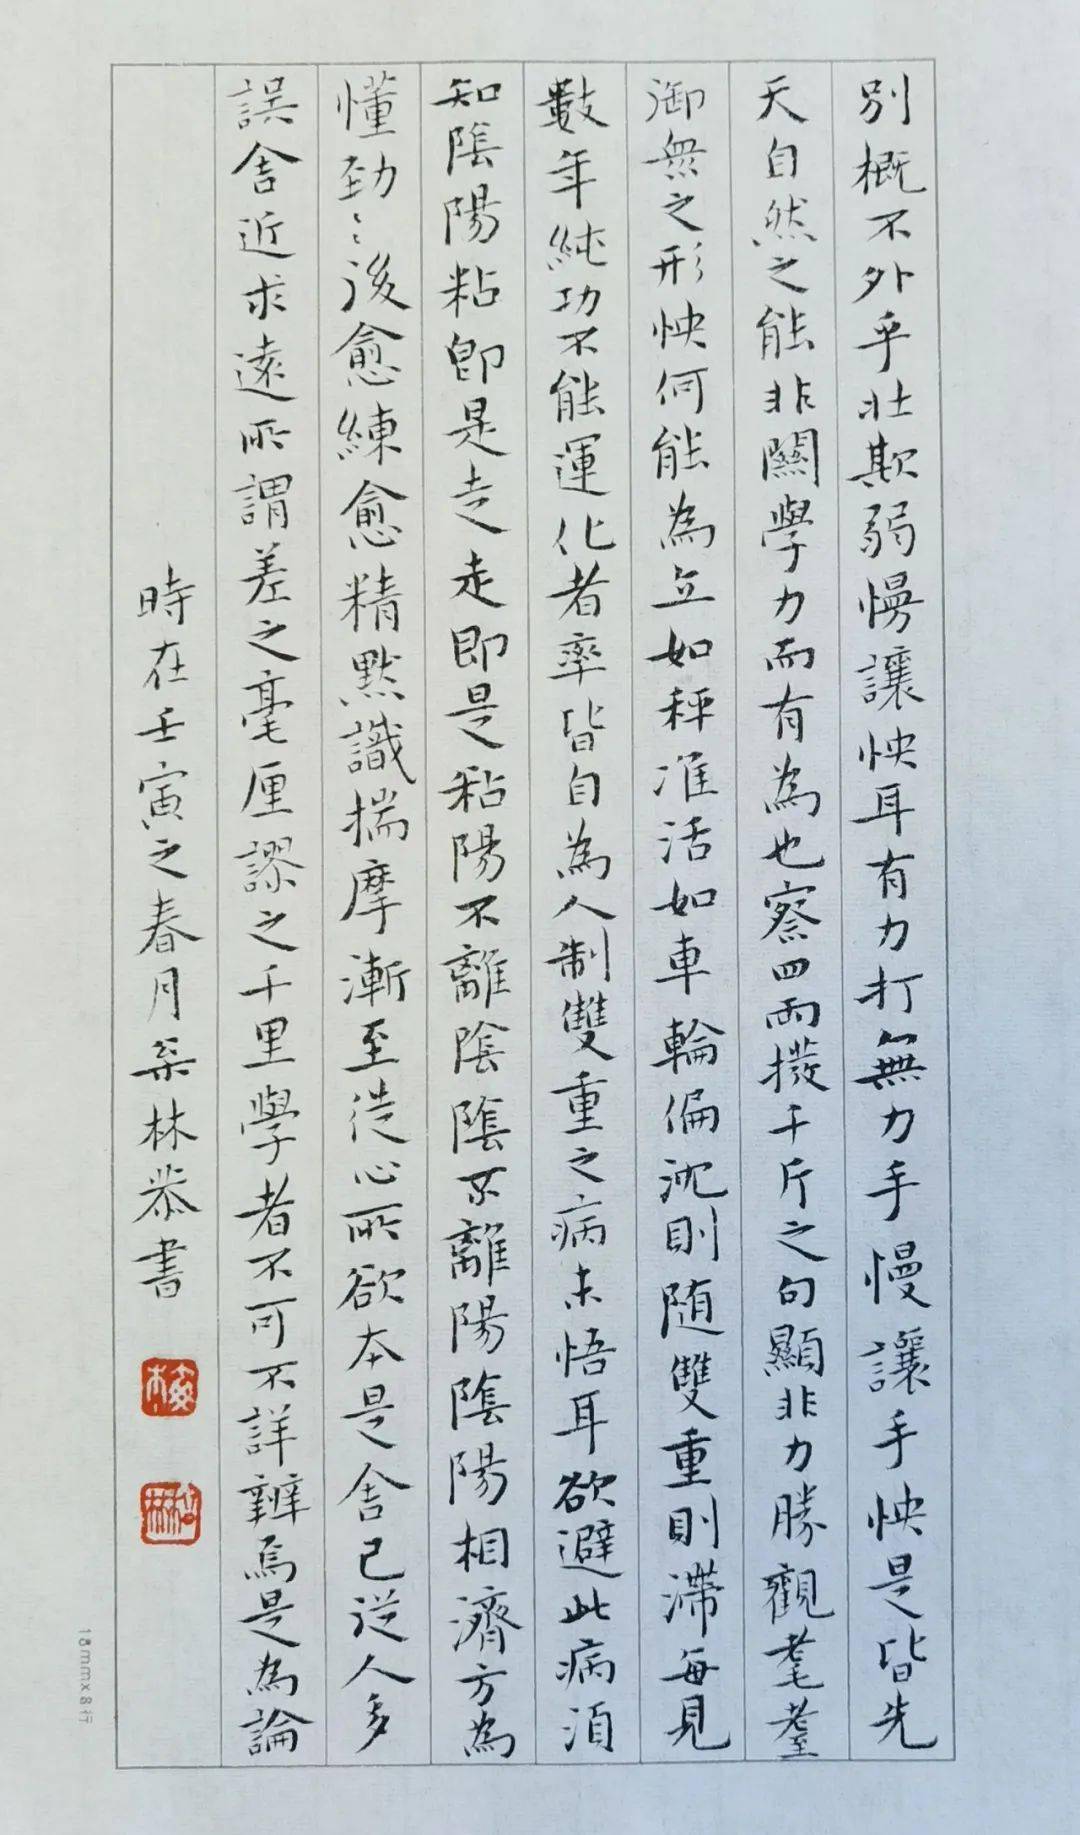 別概不外乎壯欺弱慢讓快耳有力打無力手慢讓手快是皆先
天自然之能非關學力而有為也察四兩撥千斤之句顯非力勝觀耄耋
御無之形快何能為立如秤准活如車輪偏沈則随雙重則滯每見
數年純功不能運化者率皆自為人制雙重之病未悟耳欲避此病須
知陰陽粘即是走走即是粘陽不離陰陰不離陽陰陽相濟方為
懂勁〻後愈練愈精默識揣摩漸至從心所欲本是舍己從人多
誤舍近求遠所謂差之毫厘謬之千里學者不可不詳辨焉是為論
時在壬寅之春月林恭書
18mmx8行